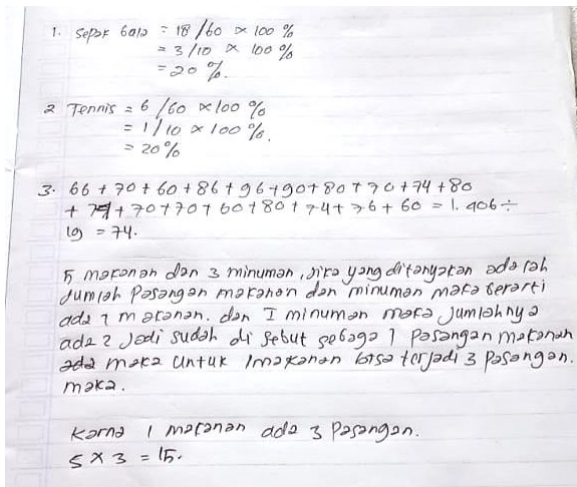 1. Sepak bola = 18/60 x 100 %
= 3/10 x 100 %
= 20 %.
2 Tennis = 6/60 x 100 %
= 1/10 x 100 %.
= 20 %
3. 66 + 70 + 60 + 86 + 96 + 90 + 80 + 70 + 74 + 80
+ 74 + 70 + 70 + 60 + 80 + 74 + 76 + 60 = 1.406 ÷
19 = 74.
5 makanan dan 3 minuman, jika yang ditanyakan adalah
Jumlah Pasangan makanan dan minuman maka berarti
ada 1 makanan. dan I minuman maka jumlahnya
ada 2 Jadi sudah di sebut sebaga 1 Pasangan makanan
maka untuk 1 makanan bisa terjadi 3 Pasangan.
maka.
Karna 1 makanan ada 3 Pasangan.
5 x 3 = 15.